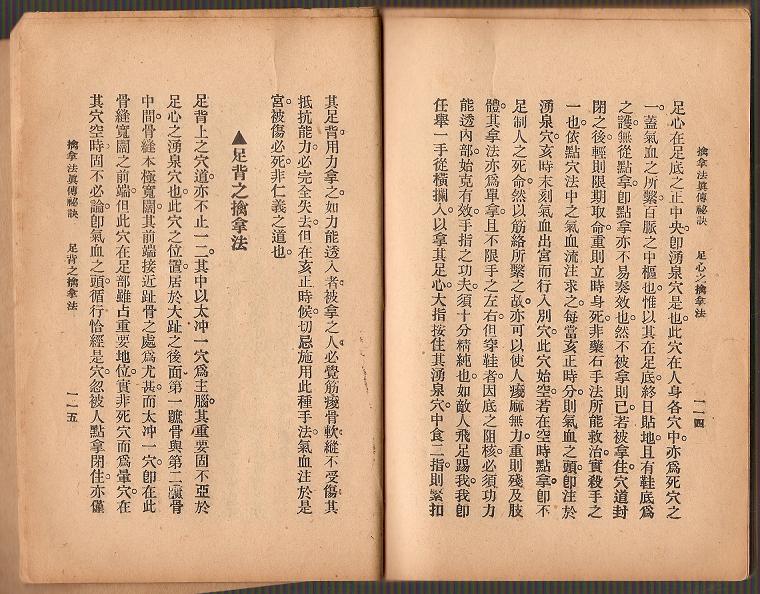 擒拿法眞傳祕訣　足心之擒拿法　一一四
足心在足底之正中央。卽湧泉穴是也。此穴在人身各穴中。亦爲死穴之
一。蓋氣血之所繫。百脈之中樞也。惟以其在足底。終日貼地。且有鞋底爲
之護。無從點拿。卽點拿亦不易奏效也。然不被拿則已。若被拿住穴道。封
閉之後。輕則限期取命。重則立時身死。非藥石手法所能救治。實殺手之
一也。依點穴法中之氣血流注求之。每當亥正時分。則氣血之頭。卽注於
湧泉穴。亥時末刻。氣血出宮而行入別穴。此穴始空。若在空時點拿。卽不
足制人之死命。然以筋絡所繫之故。亦可以使人痠麻無力。重則殘及肢
體。其拿法亦爲單拿。且不限手之左右。但穿鞋者。因底之阻核。必須功力
能透內部。始克有效。手指之功夫。須十分精純也。如敵人飛足踢我。我卽
任舉一手。從橫攔入。以拿其足心。大指按住其湧泉穴。中食二指則緊扣
其足背。用力拿之。如力能透入者。被拿之人。必覺筋痠骨軟。縫不受傷。其
抵抗能力。必完全失去。但在亥正時候。切忌施用此種手法。氣血注於是
宮。被傷必死。非仁義之道也。
▲足背之擒拿法
足背上之穴道。亦不止一二。其中以太冲一穴爲主腦。其重要固不亞於
足心之湧泉穴也。此穴之位置。居於大趾之後面。第一蹠骨與第二蹠骨
中間。骨縫本極寬闊。其前端接近趾骨之處爲尤甚。而太冲一穴。卽在此
骨縫寬闊之前端。但此穴在足部雖占重要地位。實非死穴而爲暈穴。在
其穴空時固不必論。卽氣血之頭。循行恰經是穴。忽被人點拿閉住。亦僅
擒拿法眞傳祕訣　足背之擒拿法　一一五